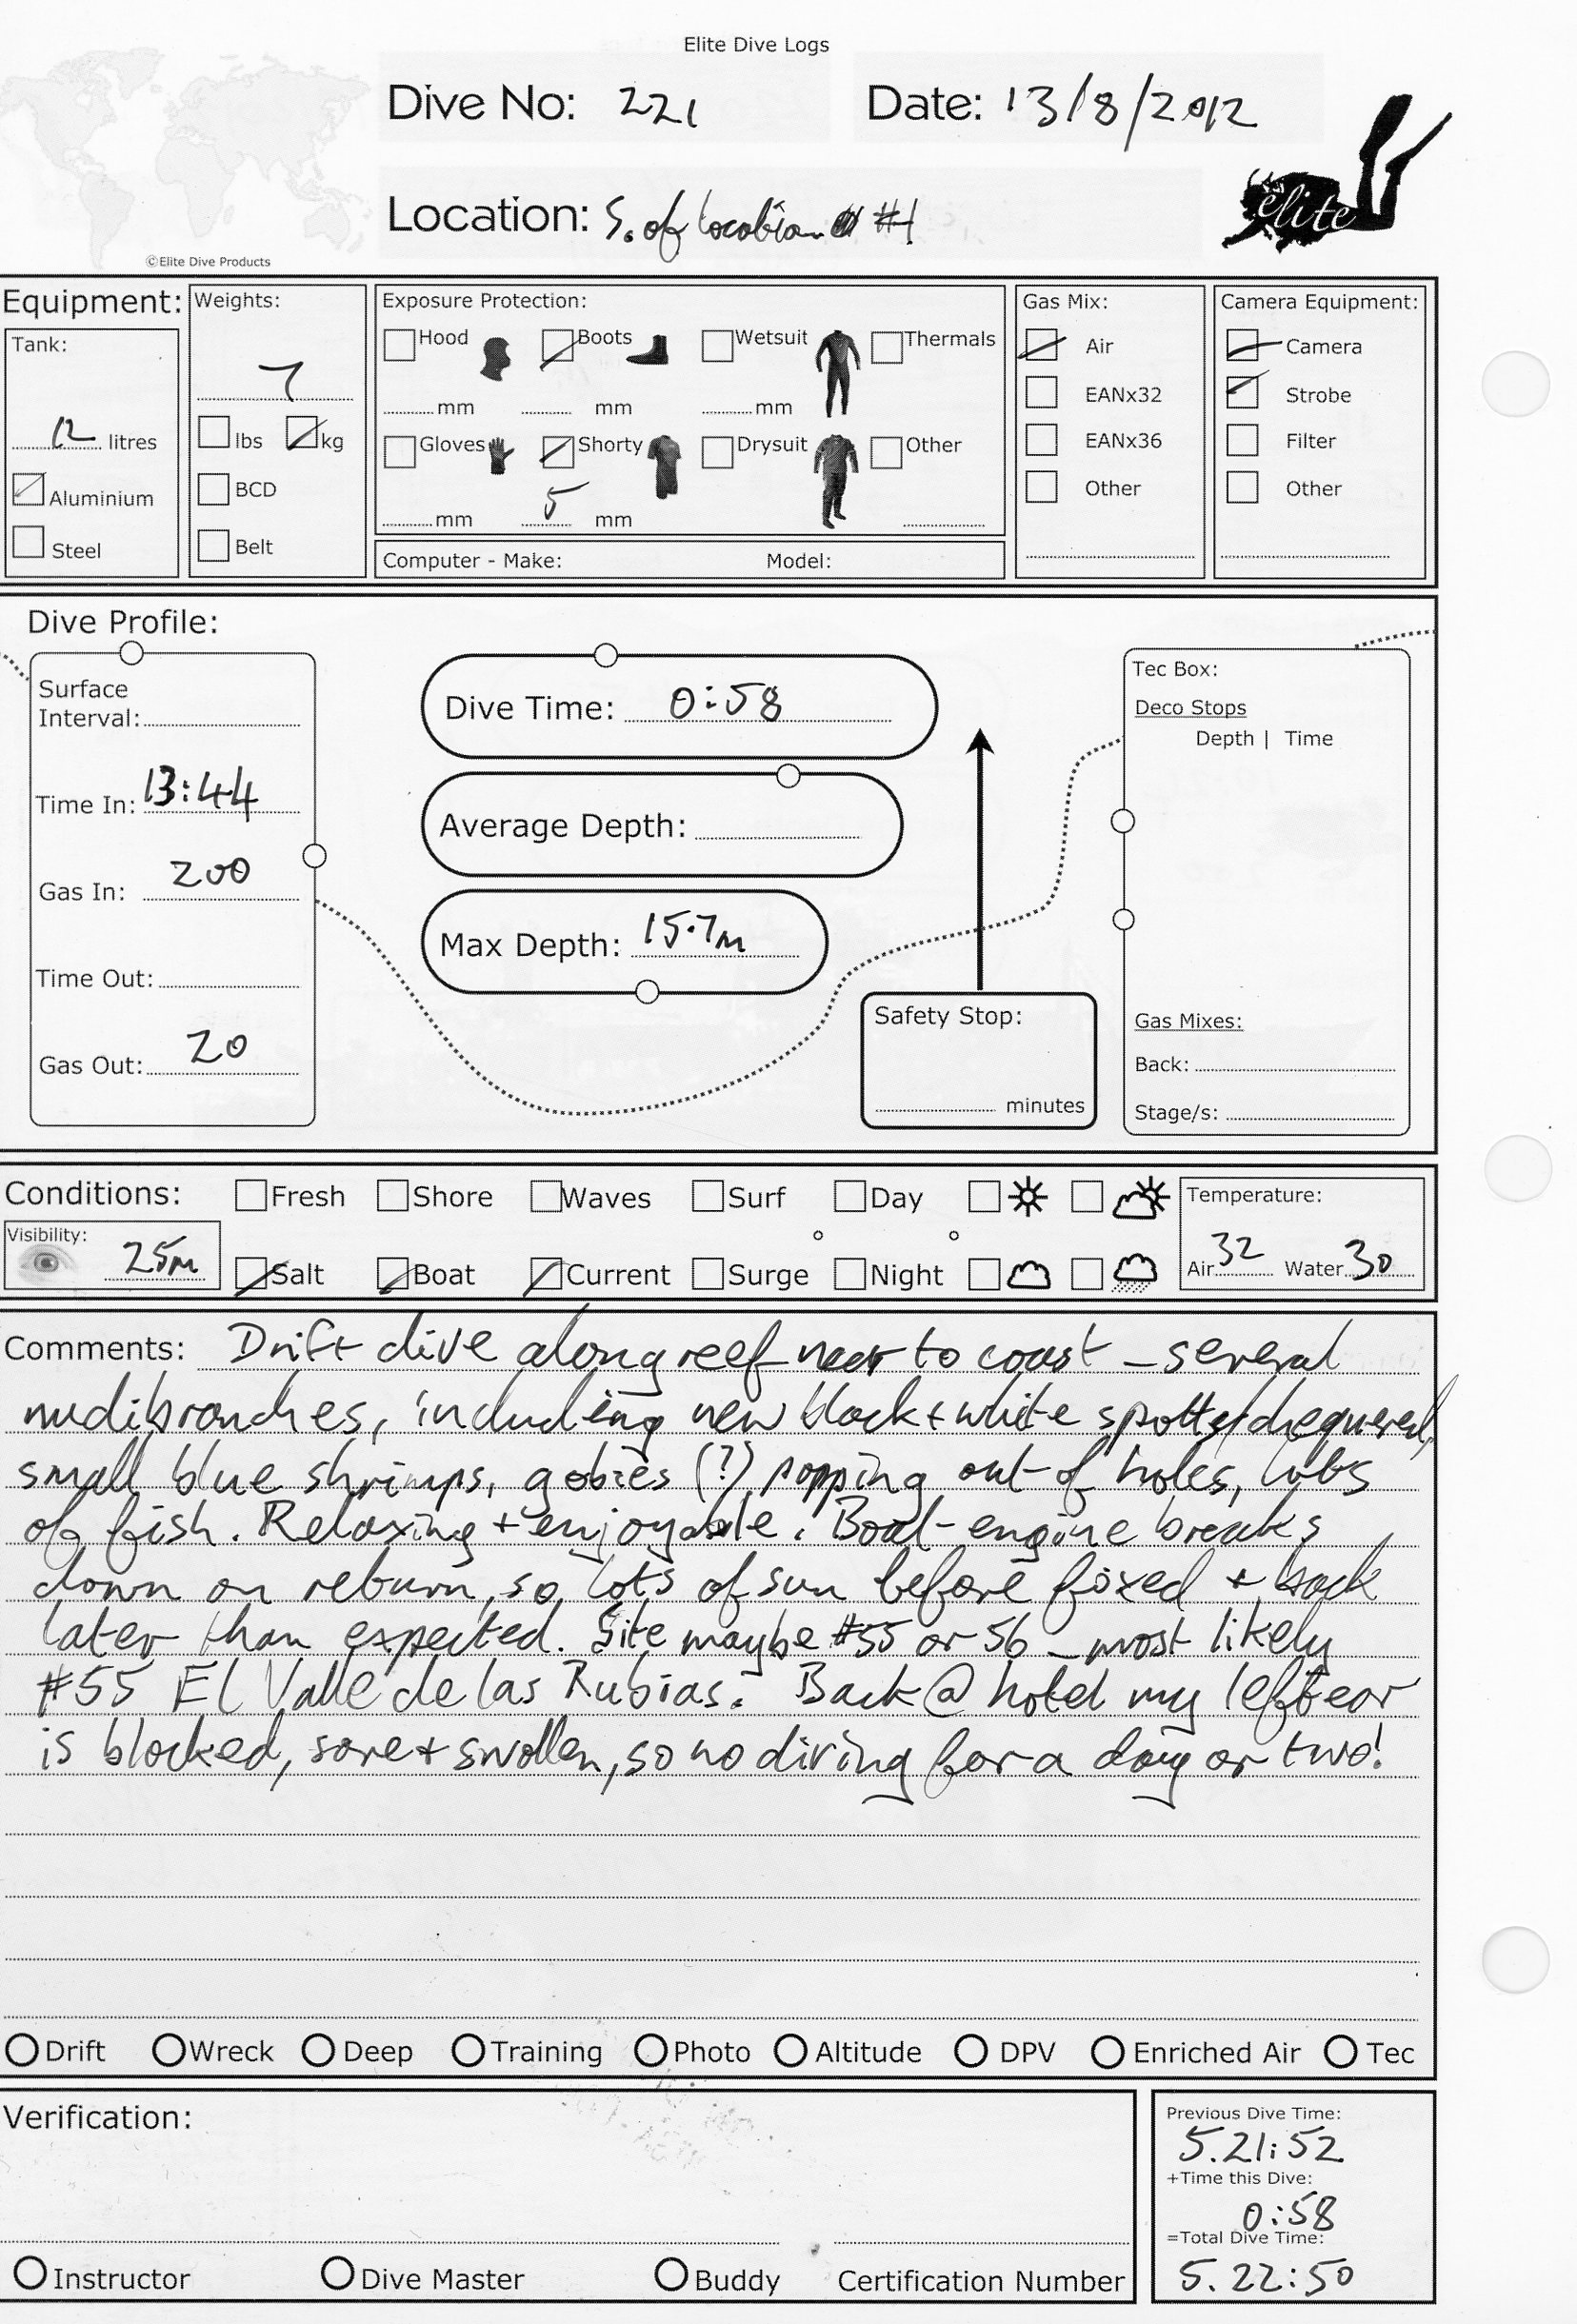 Elite Dive Logs
Dive No: 221 Date: 13/8/2012
Location: S. of location #1
elite
©Elite Dive Products
Equipment: Weights: Exposure Protection: Gas Mix: Camera Equipment:
Tank: Hood Boots Wetsuit Thermals Air Camera
7
mm mm mm EANx32 Strobe
12 litres lbs kg Gloves Shorty Drysuit Other EANx36 Filter
Aluminium BCD Other Other
mm 5 mm
Steel Belt Computer - Make: Model:
Dive Profile:
Surface
Interval:
Time In: 13:44
Gas In: 200
Time Out:
Gas Out: 20
Dive Time: 0:58
Average Depth:
Max Depth: 15.7m
Safety Stop:
minutes
Tec Box:
Deco Stops
Depth | Time
Gas Mixes:
Back:
Stage/s:
Conditions: Fresh Shore Waves Surf Day Temperature:
Visibility: 25m Salt Boat Current Surge Night Air 32 Water 30
Comments: Drift dive along reef near to coast - several
nudibranches, including new black + white spotty/chequered,
small blue shrimps, gobies (?) popping out of holes, lots
of fish. Relaxing + enjoyable. Boat engine breaks
down on return, so lots of sun before fixed + back
later than expected. Site maybe #55 or 56 - most likely
#55 El Valle de las Rubias. Back @ hotel my left ear
is blocked, sore + swollen, so no diving for a day or two!
Drift Wreck Deep Training Photo Altitude DPV Enriched Air Tec
Verification:
Instructor Dive Master Buddy Certification Number
Previous Dive Time:
5.21:52
+Time this Dive:
0:58
=Total Dive Time:
5.22:50